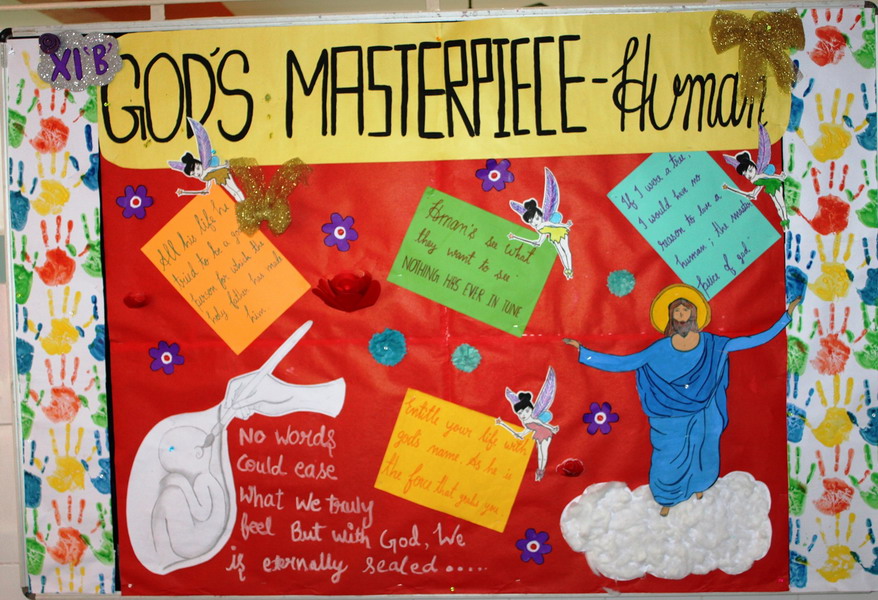 XI 'B'
GOD'S MASTERPIECE - Human
All his life he
tried to be a
person for which the
holy father has made
him
Human's see what
they want to see.
NOTHING HAS EVER IN TUNE
If I were a tree,
I would have no
reason to love a
human; the master
piece of god.
Entitle your life with
god's name As he is
the force that you.
No words
Could ease
what we truly
feel But with God, We
is eternally sealed.....